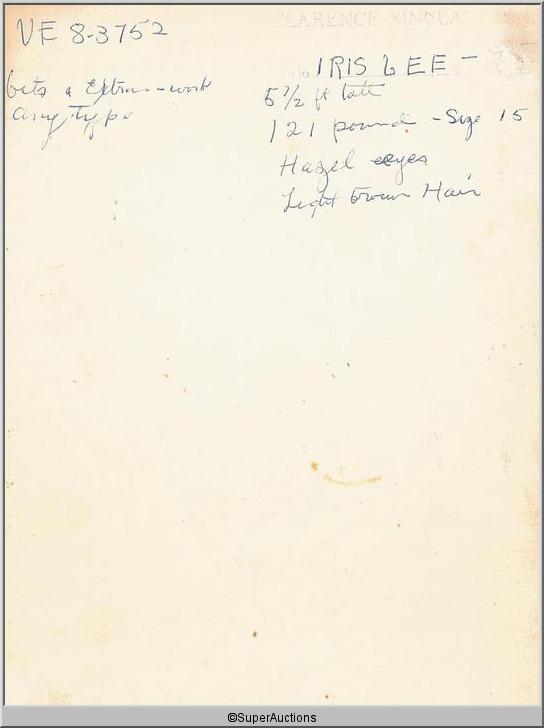 CLARENCE SINCLA
VE 8-3752
IRIS LEE -
bits & Extra - work
any type
5 1/2 ft tall
121 pound - Size 15
Hazel eyes
Light brown Hair
©SuperAuctions